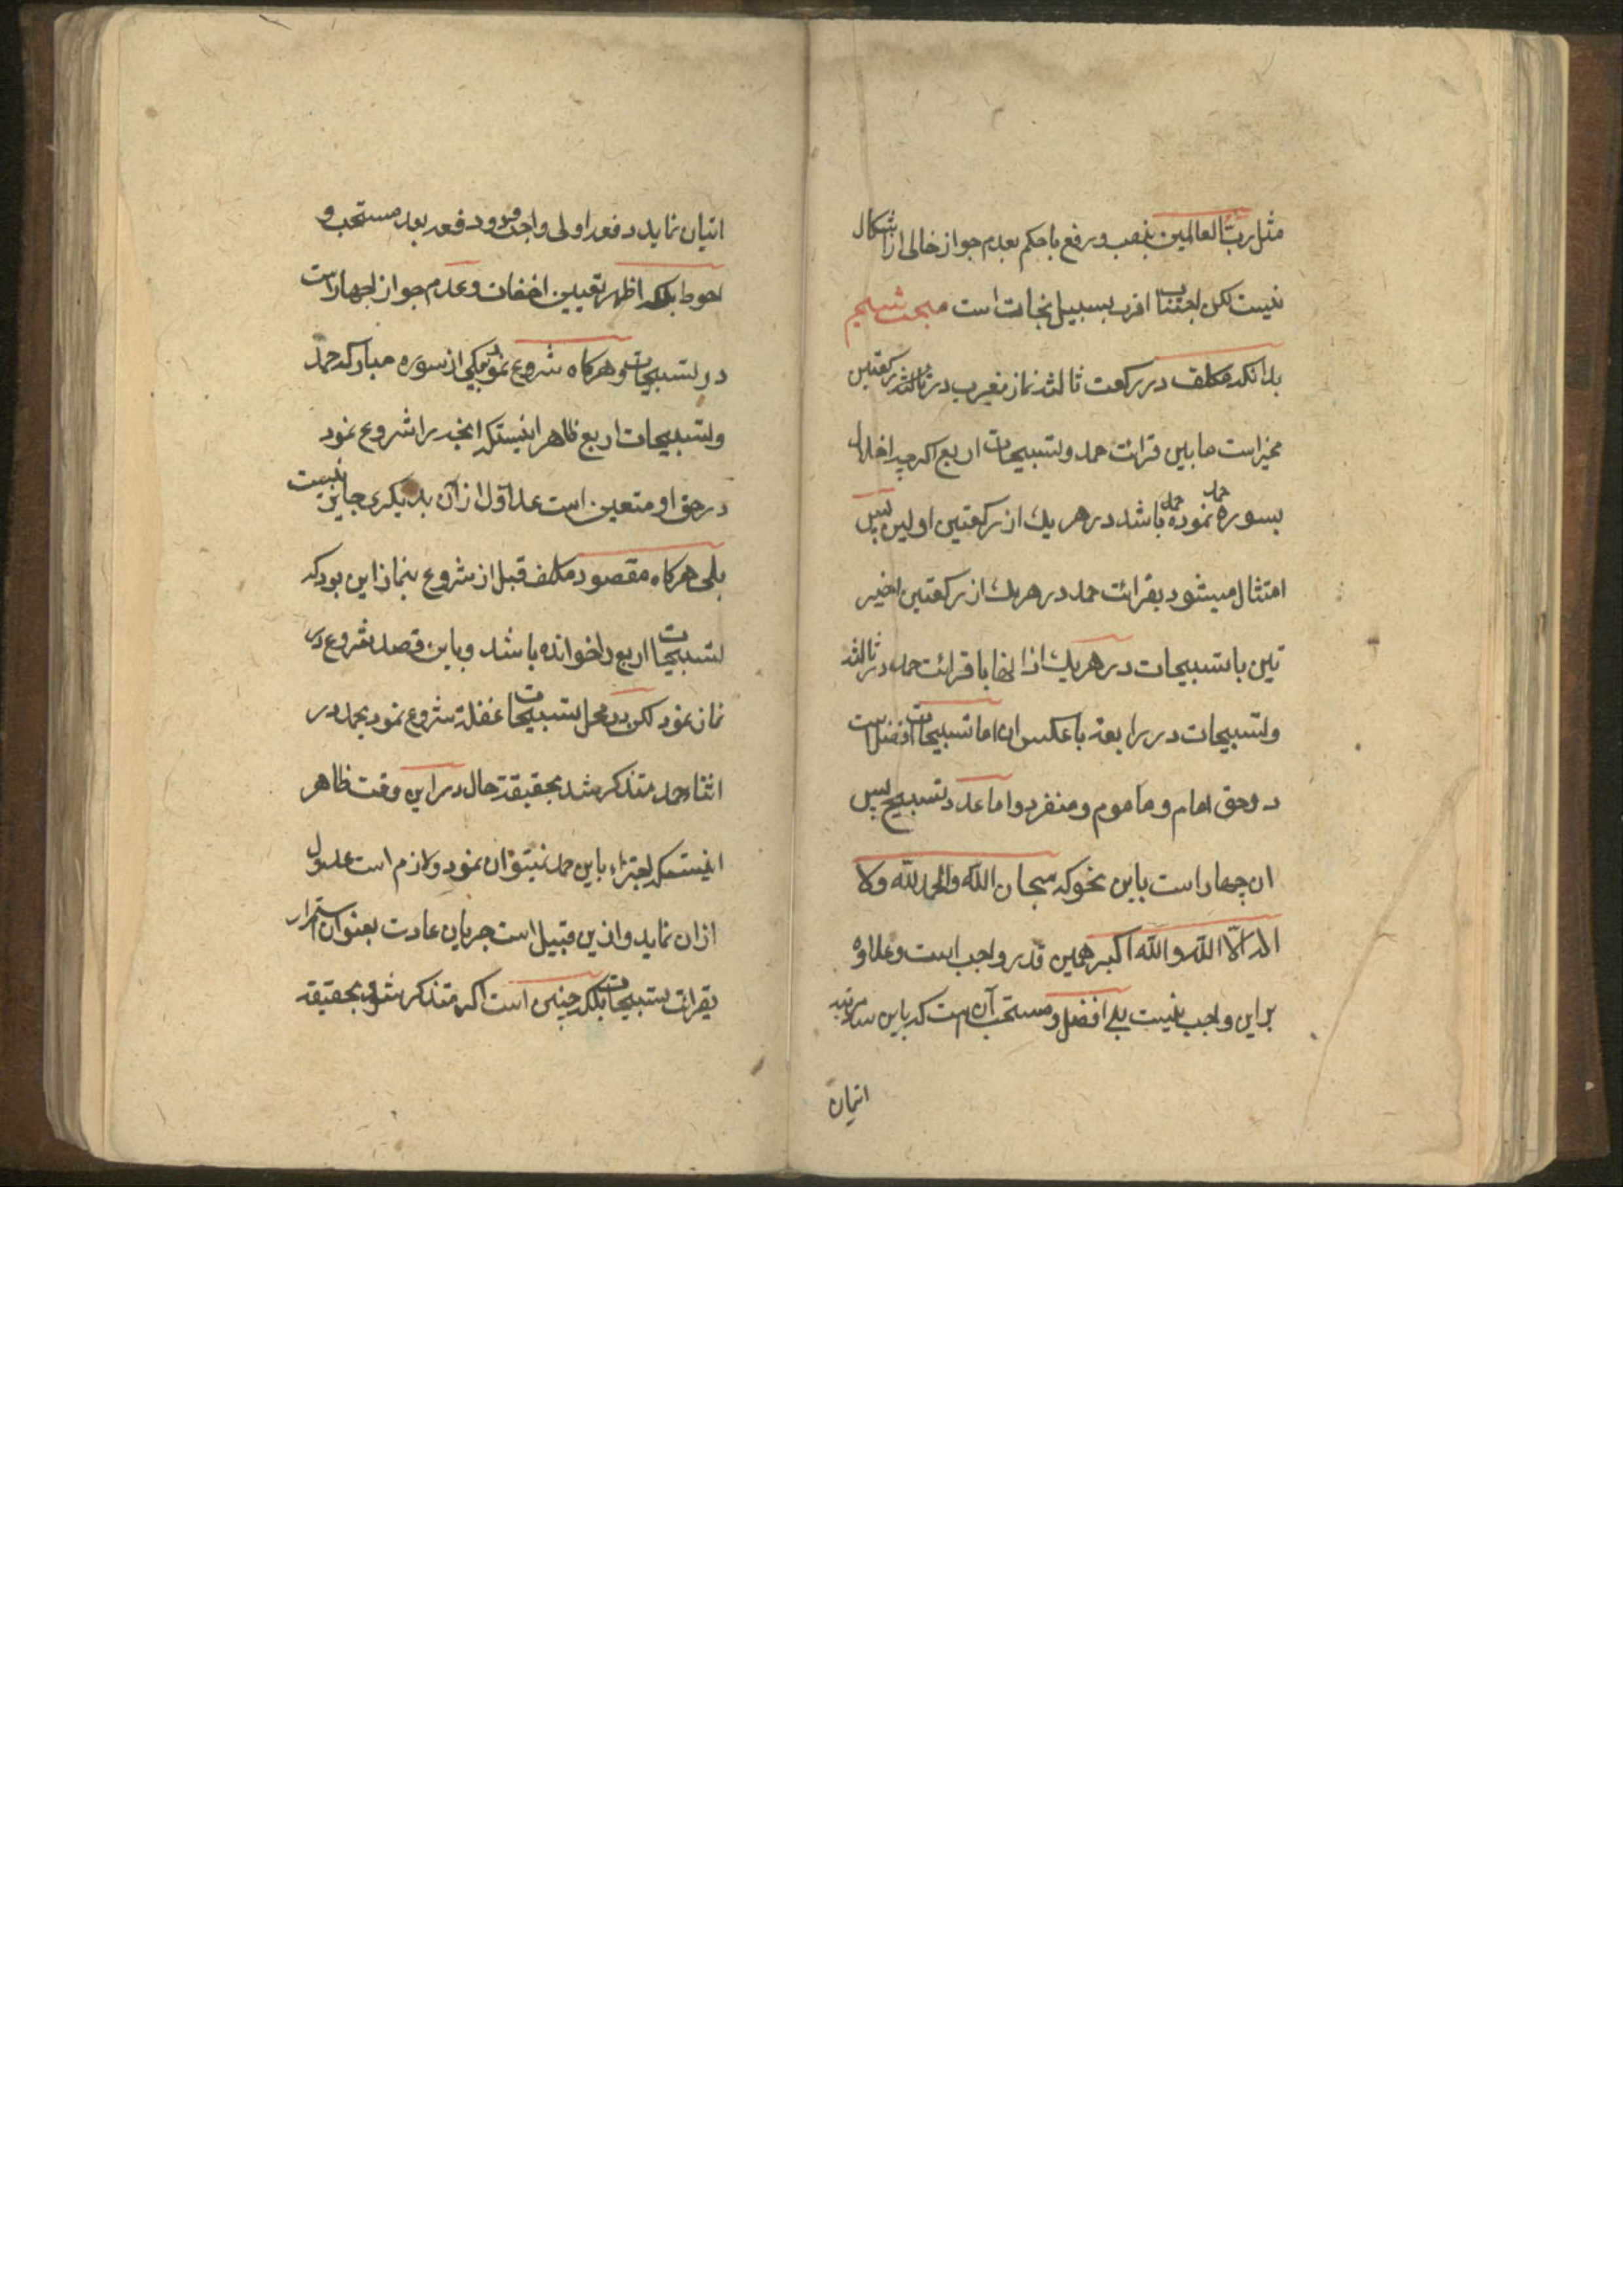 مثل ربّ العالمین بنصب و رفع با حکم بعدم جواز خالی از اشکال
نیست لکن اجتناب اقرب بسبیل نجات است مبحث ششم
بدانکه مکلف در رکعت ثالثه نماز مغرب در ثالثه رکعتین
مخیر است مابین قرائت حمد و تسبیحات اربع اکرچه اخلال
بسوره حمد نموده باشد در هر یك از رکعتین اولیین پس
امتثال میشود بقرائت حمد در هر یك از رکعتین اخیر
تین یا تسبیحات در هر یك از انها یا قرائت حمد در ثالثه
و تسبیحات در رابعه یا عکس ان اما تسبیحات افضل است
در حق امام و ماموم و منفرد و اما عدد تسبیح پس
ان چهار است باین نحو که سبحان الله والحمد لله ولا
اله الاّ الله والله اکبر همین قدر واجب است و علاوه
بر این واجب نیست بلی افضل و مستحب آن است که باین سه مرتبه
اتیان
اتیان نماید دفعه اولی واجب و دو دفعه بعد مستحب و
احوط بلکه اظهر تعیین اخفات و عدم جواز اجهار است
در تسبیحات و هرکاه شروع نمود بیکی از سوره مبارکه حمد
و تسبیحات اربع ظاهر اینست که انچه را شروع نمود
در حق او متعین است عدول از آن بدیکری جایز نیست
بلی هرکاه مقصود مکلف قبل از شروع بنماز این بود که
تسبیحات اربع را خوانده باشد و باین قصد شروع در
نماز نمود لکن در محل تسبیحات غفلة شروع نمود بحمد در
اثناء حمد متذکر شد بحقیقة حال در این وقت ظاهر
اینست که اجتزاء باین حمد نمیتوان نمود و لازم است عدول
از ان نماید و از ین قبیل است جریان عادت بعنوان استمرار
بقرائت تسبیحات بلکه چنین است اکر متذکر شود بحقیقة